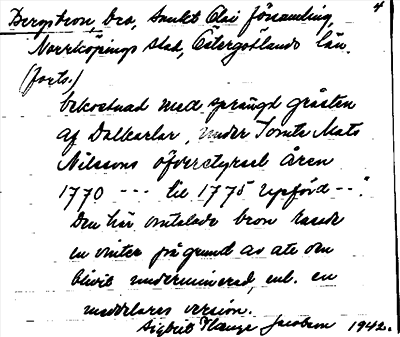 4
Bergsbron, bro, Sankt Olai församling,
Norrköpings stad, Östergötlands län.
(forts.)
bekostnad med sprängd gråsten
af Dalkarlar, under Tomts Mats
Nilssons öfverstyrsel åren
1770 --- til 1775 upförd --".
Den här omtalade bron rasade
en vinter på grund av att den
blivit underminerad, enl. en
meddelares version.
Sigbrit Plange Jacobson 1942.